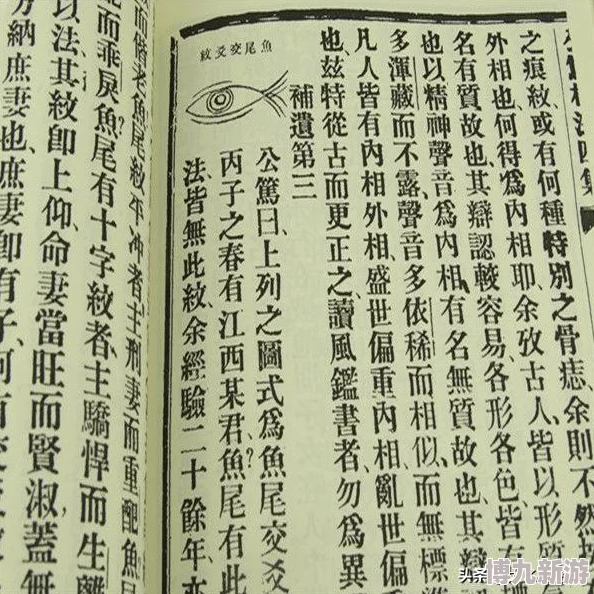 相法四集
之痕紋、或有何種特別之骨痣、余則不然
外相也、何得爲內相耶、余攷古人、皆以形質
名有質故也、其辯認較容易、各形各色、皆有
也、以精神聲音爲內相、有名無質故也、其辯
多渾藏而不露、聲音多依稀而相似、而無標
凡人皆有內相外相、盛世偏重內相、亂世偏
也、玆特從古而更正之、讀風鑑書者、勿爲異
補遺第三
魚尾交爻紋
公篤曰、上列之圖式、爲魚尾交爻
丙子之春、有江西某君、魚尾有此
法皆無此紋、余經驗二十餘年、亦
而偕老、魚尾紋年冲者、主刑妻而重配、魚
而乖戾、魚尾有十字紋者、主驕悍而生離
以法其紋卽上仰、命妻當旺而賢淑、蓋無
納庶妻也、庶妻卽有子
头条
博九新游